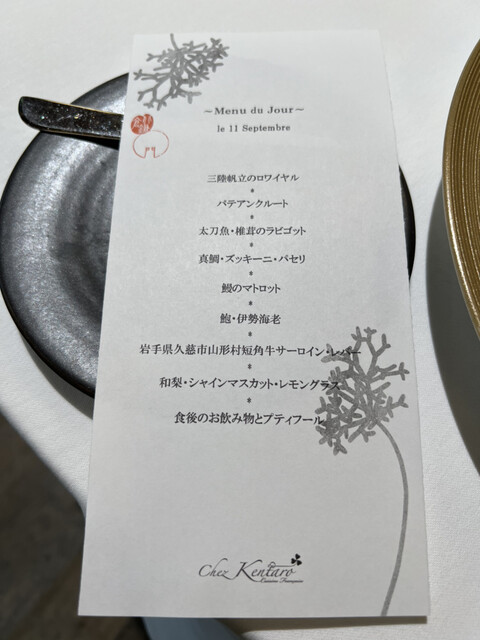 ~Menu du Jour~
le 11 Septembre
三陸帆立のロワイヤル
*
パテアンクルート
*
太刀魚・椎茸のラビゴット
*
真鯛・ズッキーニ・パセリ
*
鰻のマトロット
*
鮑・伊勢海老
*
岩手県久慈市山形村短角牛サーロイン・レバー
*
和梨・シャインマスカット・レモングラス
*
食後のお飲み物とプティフール
Chez Kentaro
Cuisine Française